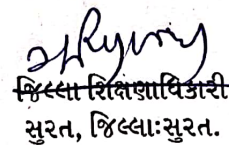 જિલ્લા શિક્ષણાધિકારી
સુરત, જિલ્લાઃસુરત.